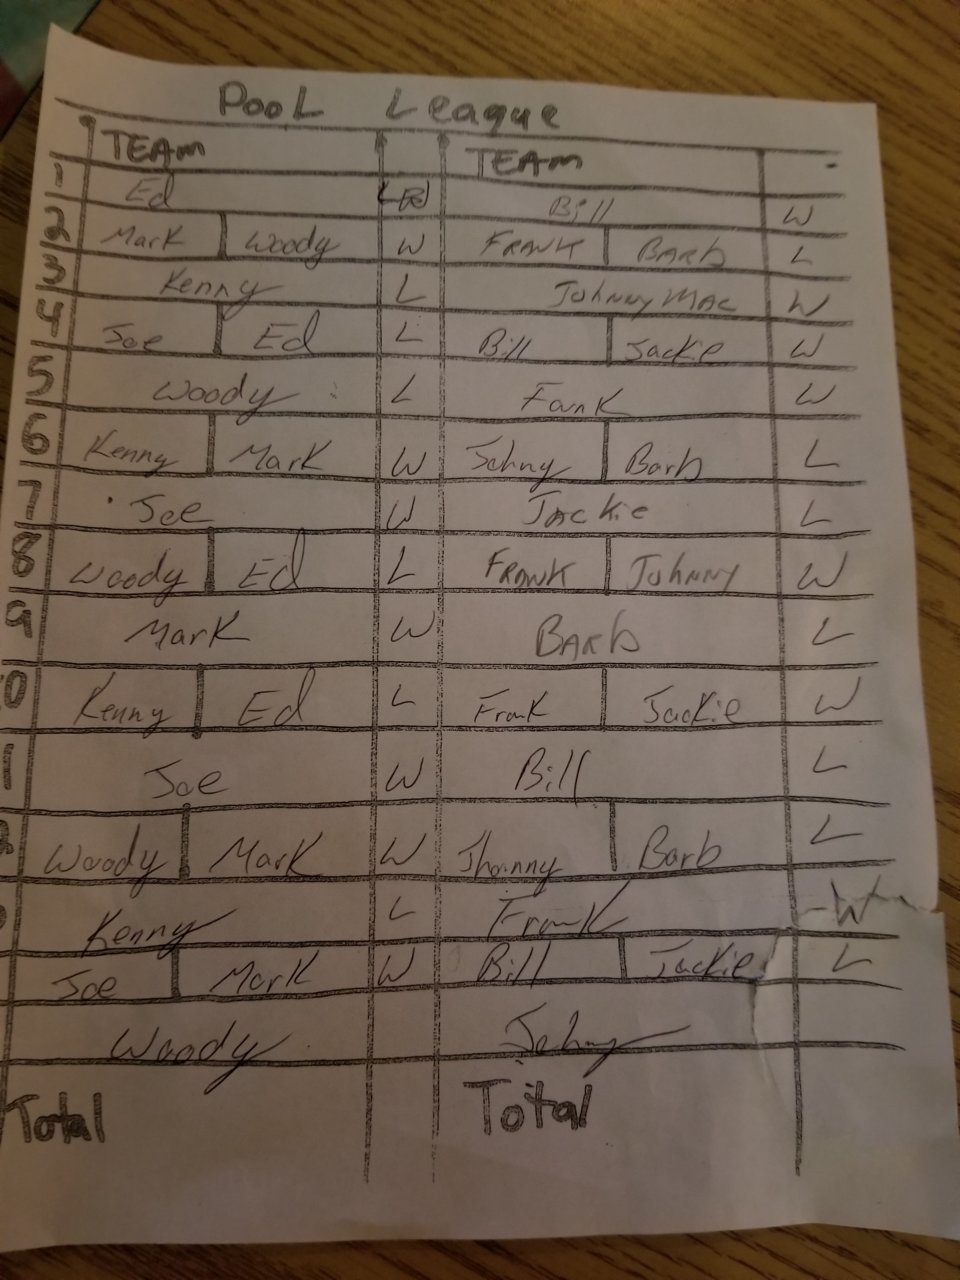 PooL League
TEAM TEAM
1 Ed L Bill W
2 Mark Woody W FRANK BARb L
3 Kenny L JohNNy MAC W
4 Joe Ed L Bill Jackie W
5 Woody L Fank W
6 Kenny Mark W Johny Barb L
7 Joe W JAckie L
8 Woody Ed L FRANK JOhNNy W
9 Mark W BARb L
0 Kenny Ed L Frank Jackie W
1 Joe W Bill L
2 Woody Mark W Jhonny Barb L
Kenny L Frank W
Joe Mark W Bill Jackie L
Woody Johny
Total Total